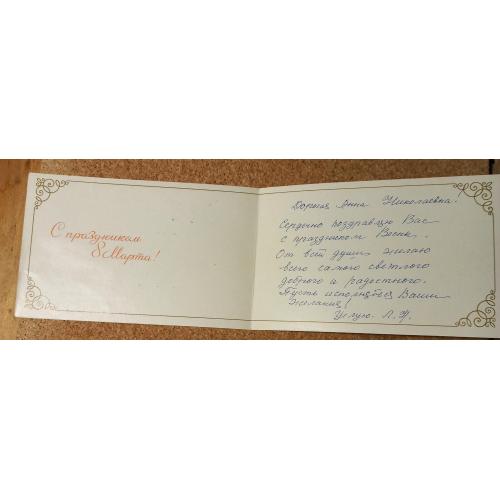 С праздником
8 Марта!
Дорогая Анна Николаевна.
Сердечно поздравляю Вас
с праздником Весны.
От всей души желаю
всего самого светлого
доброго и радостного.
Пусть исполняются Ваши
желания!
Л. Ф.